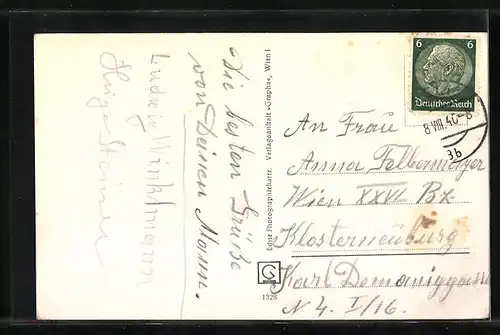 Die besten Grüße
von Deinen Mann.
Ludwig Winklmann
Hugo Steiner
Echte Photographiekarte. Verlagsanstalt »Grapha«, Wien I
1328
6 6
Deutsches Reich
8.VIII.40-8
3b
An Frau
Anna Felbermayer
Wien XXVI. Bz.
Klosterneuburg
Karl Domaniggasse
N 4. I/16.